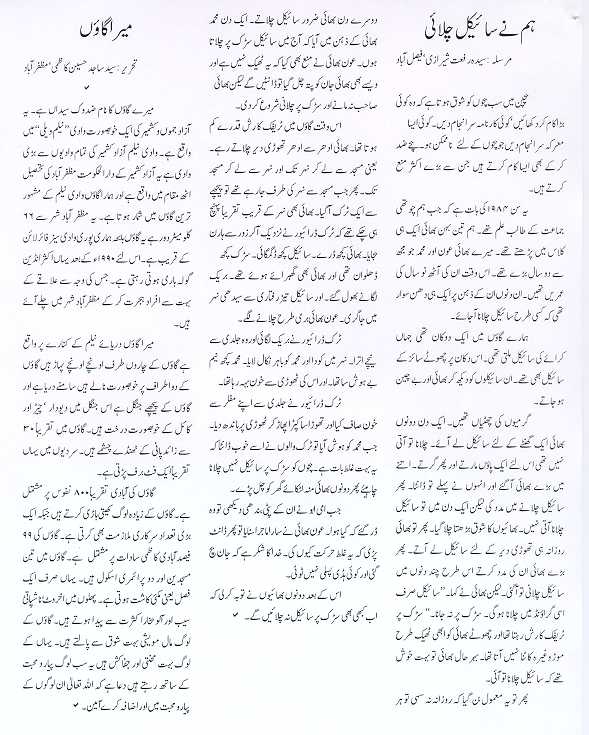 ہم نے سائیکل چلائی
مرسلہ: سیدہ رفعت شیرازی، فیصل آباد
بچپن میں سب بچوں کو شوق ہوتا ہے کہ وہ کوئی
بڑا کام کر دکھائیں، کوئی کارنامہ سرانجام دیں۔ کوئی ایسا
معرکہ سرانجام دیں جو بچوں کے لئے ناممکن ہو۔ بچے ضد
کر کے بھی ایسا کام کرتے ہیں جن سے بڑے اکثر منع
کرتے ہیں۔
یہ سن ۱۹۸۴ کی بات ہے کہ جب ہم چوتھی
جماعت کے طالب علم تھے۔ ہم تین بہن بھائی ایک ہی
کلاس میں پڑھتے تھے۔ میرے بھائی عون اور محمد جو مجھ
سے دو سال بڑے تھے۔ اس وقت ان کی آٹھ نو سال کی
عمریں تھیں۔ ان دونوں ان کے ذہن پر ایک ہی دھن سوار
تھی کہ کسی طرح سائیکل چلانا آجائے۔
ہمارے گاؤں میں ایک دوکان تھی جہاں
کرائے کی سائیکل ملتی تھی۔ اس دکان پر چھوٹے سائز کے
سائیکل بھی تھے۔ ان سائیکلوں کو دیکھ کر بھائی اور بے چین
ہو جاتے۔
گرمیوں کی چھٹیاں تھیں۔ ایک دن دونوں
بھائی ایک گھنٹے کے لئے سائیکل لے آئے۔ چلانا تو آتی
نہیں تھی اس لئے ایک پاؤں مارتے اور پھر گرتے۔ اتنے
میں بڑے بھائی آگئے اور انہوں نے پہلے تو ڈانٹا۔ پھر
سائیکل چلانے میں مدد کی لیکن ایک دن میں تو سائیکل
چلانا آتی نہیں۔ بھائیوں کا شوق بڑھتا چلا گیا۔ پھر تو بھائی
روزانہ ہی تھوڑی دیر کے لئے سائیکل لے آتے۔ پھر
بڑے بھائی ان کی مدد کرتے اس طرح چند دونوں میں
سائیکل چلانی تو آگئی۔ لیکن بھائی نے کہا۔ "سائیکل صرف
اسی گراؤنڈ میں چلانا ہوگی۔ سڑک پر نہ جانا۔" سڑک پر
ٹریفک کا رش رہتا تھا اور چھوٹے بھائی کو ابھی ٹھیک طرح
موڑ وغیرہ کاٹنا نہیں آتا تھا۔ بہر حال بھائی تو بہت خوش
تھے کہ سائیکل چلانا تو آئی۔
پھر تو یہ معمول بن گیا کہ روزانہ نہ سہی تو ہر
دوسرے دن بھائی ضرور سائیکل چلاتے۔ ایک دن محمد
بھائی کے ذہن میں آیا کہ آج میں سائیکل سڑک پر چلاتا
ہوں۔ عون بھائی نے منع بھی کیا کہ یہ ٹھیک نہیں ہے اور
ویسے بھی بھائی جان کو پتہ چل گیا تو ڈانٹیں گے لیکن بھائی
صاحب نہ مانے اور سڑک پر چلانی شروع کر دی۔
اس وقت گاؤں میں ٹریفک کا رش قدرے کم
ہوتا تھا۔ بھائی ادھر سے ادھر تھوڑی دیر چلاتے رہے۔
یعنی مسجد سے لے کر نہر تک اور نہر سے لے کر مسجد
تک۔ پھر جب مسجد سے نہر کی طرف جا رہے تھے تو پیچھے
سے ایک ٹرک آگیا۔ بھائی نہر کے قریب تقریباً پہنچ
ہی چکے تھے کہ ٹرک ڈرائیور نے نزدیک آ کر زور سے ہارن
بجایا۔ بھائی ڈر گئے۔ سائیکل کچھ ڈگمگائی۔ سڑک کچھ
ڈھلوان تھی اور بھائی بھی گھبرائے ہوئے تھے۔ بریک
لگانے بھول گئے۔ اور سائیکل تیز رفتاری سے سیدھی نہر
میں جا گری۔ عون بھائی بری طرح چلانے لگے۔
ٹرک ڈرائیور نے بریک لگائی اور وہ جلدی سے
نیچے اترا۔ نہر میں کودا اور محمد کو باہر نکال لایا۔ محمد کچھ نیم
بے ہوش سا تھا۔ اور اس کی ٹھوڑی سے خون بہہ رہا تھا۔
ٹرک ڈرائیور نے جلدی سے اپنے مفلر سے
خون صاف کیا اور تھوڑا سا کپڑا پھاڑ کر ٹھوڑی پر باندھ دیا۔
جب محمد کو ہوش آیا تو ٹرک والوں نے اسے خوب ڈانٹا کہ
یہ بہت غلط بات ہے۔ بچوں کو سڑک پر سائیکل نہیں چلانا
چاہیئے پھر دونوں بھائی منہ لٹکائے گھر کو چل پڑے۔
جب امی ابو نے ان کے پٹی بندھی دیکھی تو وہ
ڈر گئے کہ کیا ہوا۔ عون بھائی نے سارا ماجرا سنایا تو پھر ڈانٹ
پڑی کہ یہ غلط حرکت کیوں کی۔ خدا کا شکر ہے کہ جان بچ
گئی اور کوئی ہڈی پسلی نہیں ٹوٹی۔
اس کے بعد دونوں بھائیوں نے توبہ کر لی کہ
اب کبھی بھی سڑک پر سائیکل نہ چلائیں گے۔
میرا گاؤں
تحریر: سید ساجد حسین کاظمی، مظفر آباد
میرے گاؤں کا نام ضدوک سیداں ہے۔ یہ
آزاد جموں و کشمیر کی ایک خوبصورت وادی "نیلم ویلی" میں
واقع ہے۔ وادی نیلم آزاد کشمیر کی تمام وادیوں سے بڑی
وادی ہے یہ آزاد کشمیر کے دارالحکومت مظفر آباد کی تحصیل
اٹھ مقام میں واقع ہے اور ہمارا گاؤں وادی نیلم کے مشہور
ترین گاؤں میں شمار ہوتا ہے۔ یہ مظفر آباد شہر سے ۶۶
کلومیٹر دور ہے یہ گاؤں بلکہ ہماری پوری وادی سیز فائر لائن
کے قریب ہے۔ اس لئے ۱۹۹۰ء کے بعد یہاں اکثر انڈین
گولہ باری ہوتی رہتی ہے۔ جس کی وجہ سے علاقے کے
بہت سے افراد ہجرت کر کے مظفر آباد شہر میں چلے آئے
ہیں۔
میرا گاؤں دریائے نیلم کے کنارے پر واقع
ہے گاؤں کے چاروں طرف اونچے اونچے پہاڑ ہیں گاؤں
کے دو اطراف پر خوبصورت نالے ہیں سامنے دریا ہے اور
گاؤں کے پیچھے جنگل ہے اس جنگل میں دیودار، چیڑ اور
کائل کے خوبصورت درخت ہیں۔ گاؤں میں تقریباً ۳۰
سے زائد پانی کے ٹھنڈے چشمے ہیں۔ سردیوں میں یہاں
تقریباً ایک فٹ برف پڑتی ہے۔
گاؤں کی آبادی تقریباً ۸۰۰ نفوس پر مشتمل
ہے۔ گاؤں کے زیادہ لوگ کھیتی باڑی کرتے ہیں جبکہ ایک
بڑی تعداد سرکاری ملازمت بھی کرتی ہے۔ گاؤں کی ۹۹
فیصد آبادی کاظمی سادات پر مشتمل ہے۔ گاؤں میں تین
مسجدیں اور دو پرائمری اسکول ہیں۔ یہاں صرف ایک
فصل یعنی مکئی کاشت ہوتی ہے۔ پھلوں میں اخروٹ، ناشپاتی،
سیب اور آلو بخارا کثرت سے پیدا ہوتے ہیں۔ گاؤں کے
لوگ مال مویشی بہت شوق سے پالتے ہیں۔ یہاں کے
لوگ بہت محنتی اور جفاکش ہیں یہ سب لوگ پیار و محبت
کے ساتھ رہتے ہیں دعا ہے کہ اللہ تعالیٰ ان لوگوں کے
پیار و محبت میں اور اضافہ کرے آمین۔